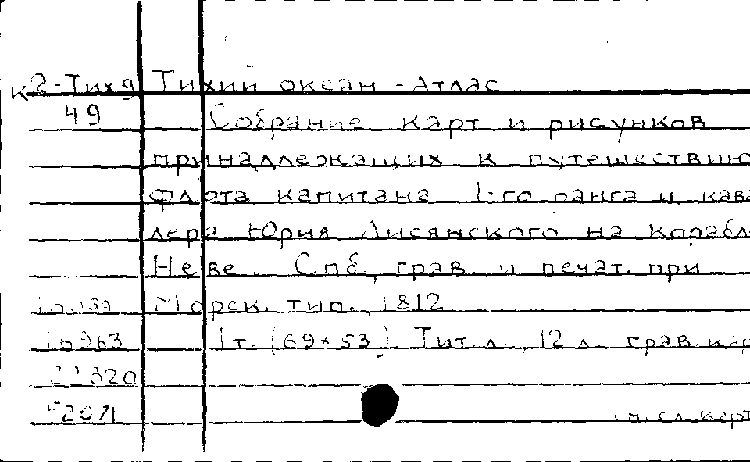 К2-Тих9 Тихий океан - Атлас
49 Собрание карт и рисунков
принадлежащих к путешествию
флота капитана 1-го ранга и кава
лера Юрия Лисянского на корабл
Неве. Спб, грав. и печат. при
Морск. тип., 1812
16963 1т. (69×53). Тит. л., 12 л. грав. кар
21320
см. сл. карт